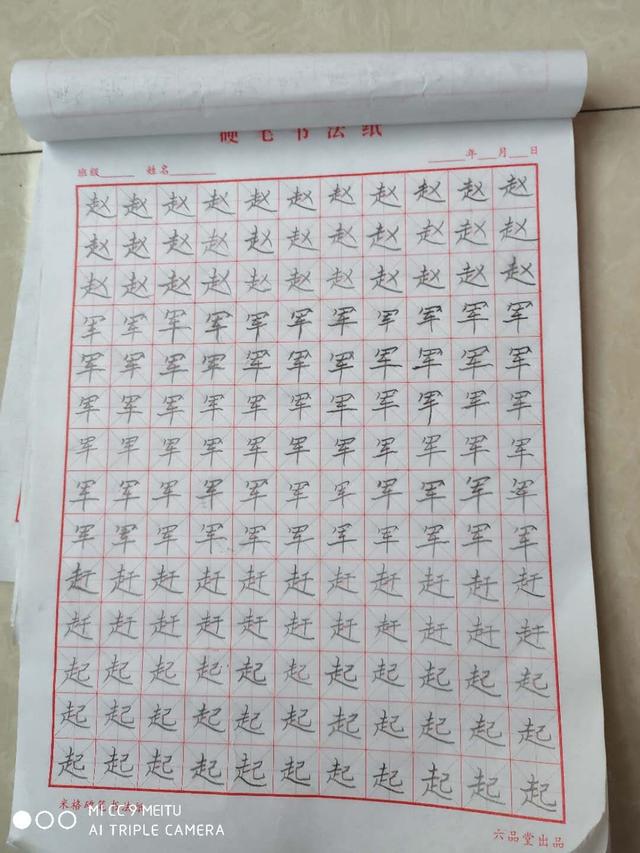 硬笔书法纸
班级 姓名 年 月 日
赵赵赵赵赵赵赵赵赵赵赵
赵赵赵赵赵赵赵赵赵赵赵
赵赵赵赵赵赵赵赵赵赵赵
军军军军军军军军军军军
军军军军军军军军军军军
军军军军军军军军军军军
军军军军军军军军军军军
军军军军军军军军军军军
军军军军军军军军军军军
赶赶赶赶赶赶赶赶赶赶赶
赶赶赶赶赶赶赶赶赶赶赶
起起起起起起起起起起起
起起起起起起起起起起起
起起起起起起起起起起起
米格硬笔书法纸
六品堂出品
MI CC 9 MEITU
AI TRIPLE CAMERA